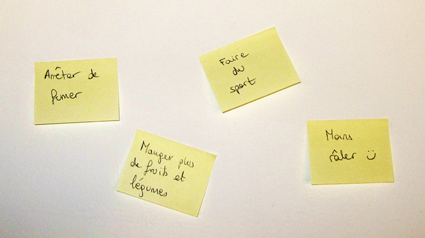 Arrêter de
fumer
Faire
du
sport
Manger plus
de fruits et
légumes
Moins
râler :)